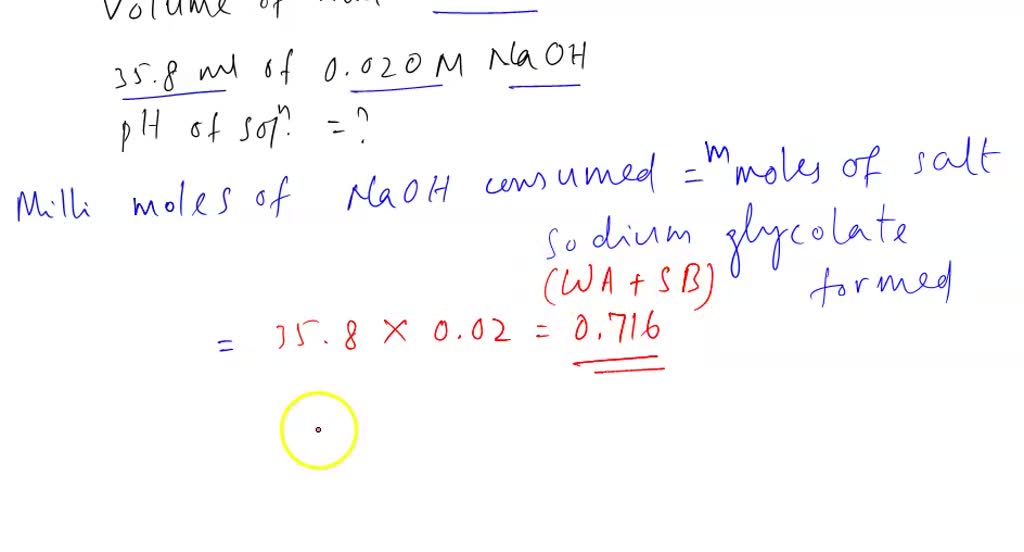 Volume of
35.8 ml of 0.020 M NaOH
pH of solⁿ. = ?
Milli moles of NaOH consumed = m moles of salt
sodium glycolate
(WA + SB) formed
= 35.8 × 0.02 = 0.716